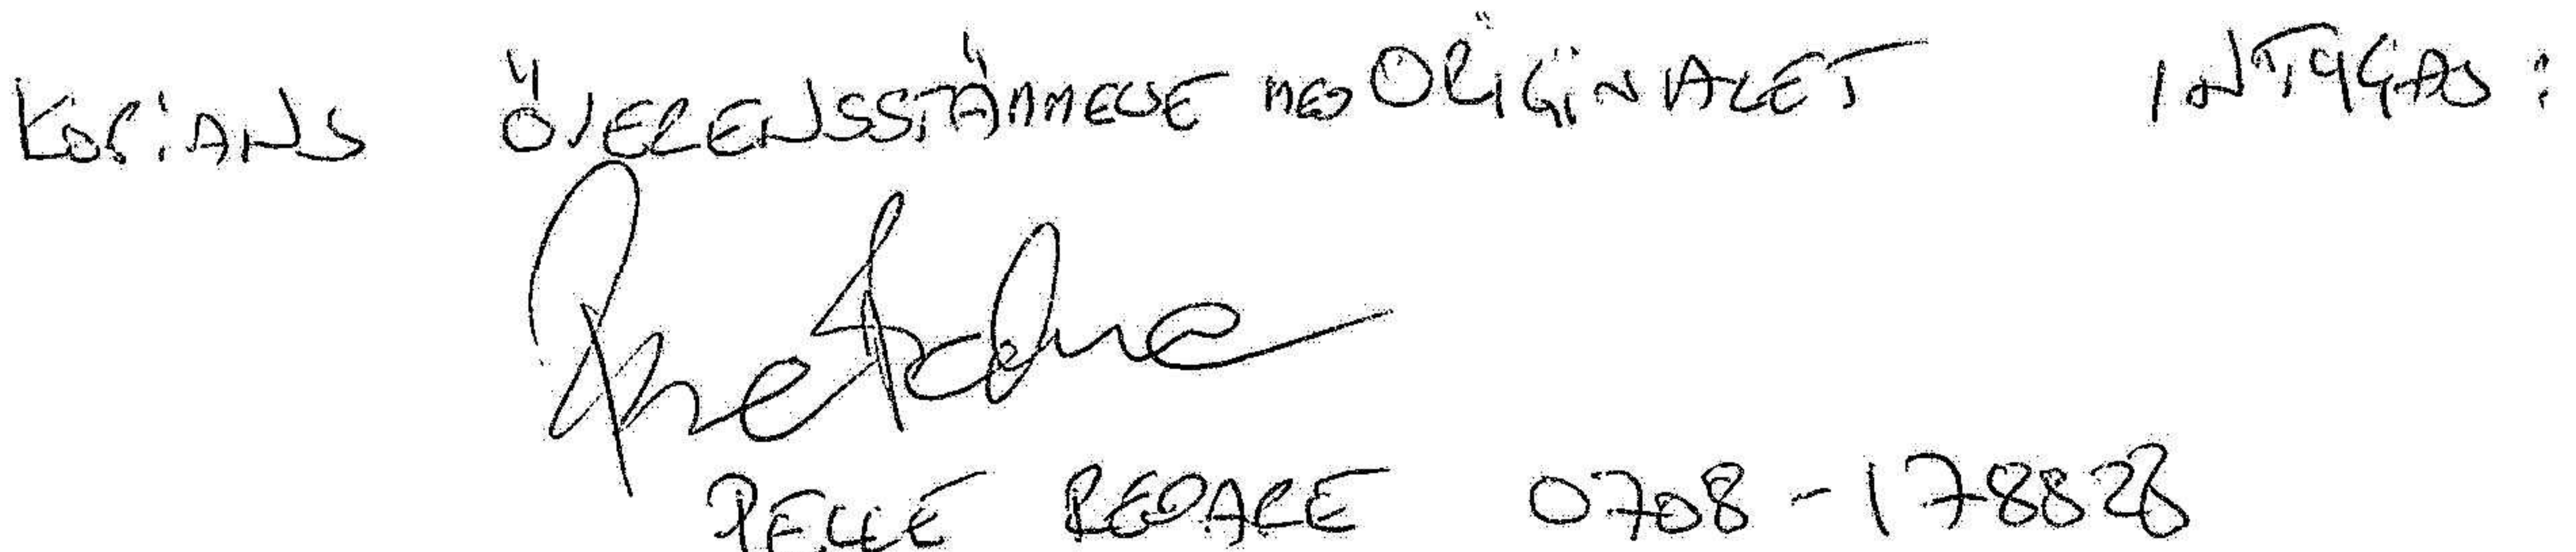 KOPIANS ÖVERENSSTÄMMELSE MED ORIGINALET INTYGAS:
PELLE REDARE 0708-178828